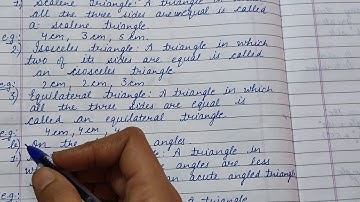 1) Scalene Triangle: A triangle in which
all the three sides are unequal is called
a scalene triangle.
e.g: 4 cm, 3 cm, 5 cm.
2) Isosceles triangle: A triangle in which
two of its sides are equal is called
an isosceles triangle
e.g: 2 cm, 2 cm, 3 cm.
3) Equilateral triangle: A triangle in which
all the three sides are equal is
called an equilateral triangle.
e.g: 4 cm, 4 cm, 4
On the angles.
1) triangle: A triangle in
angles are less
an acute angled triangle
e.g:
A triangle